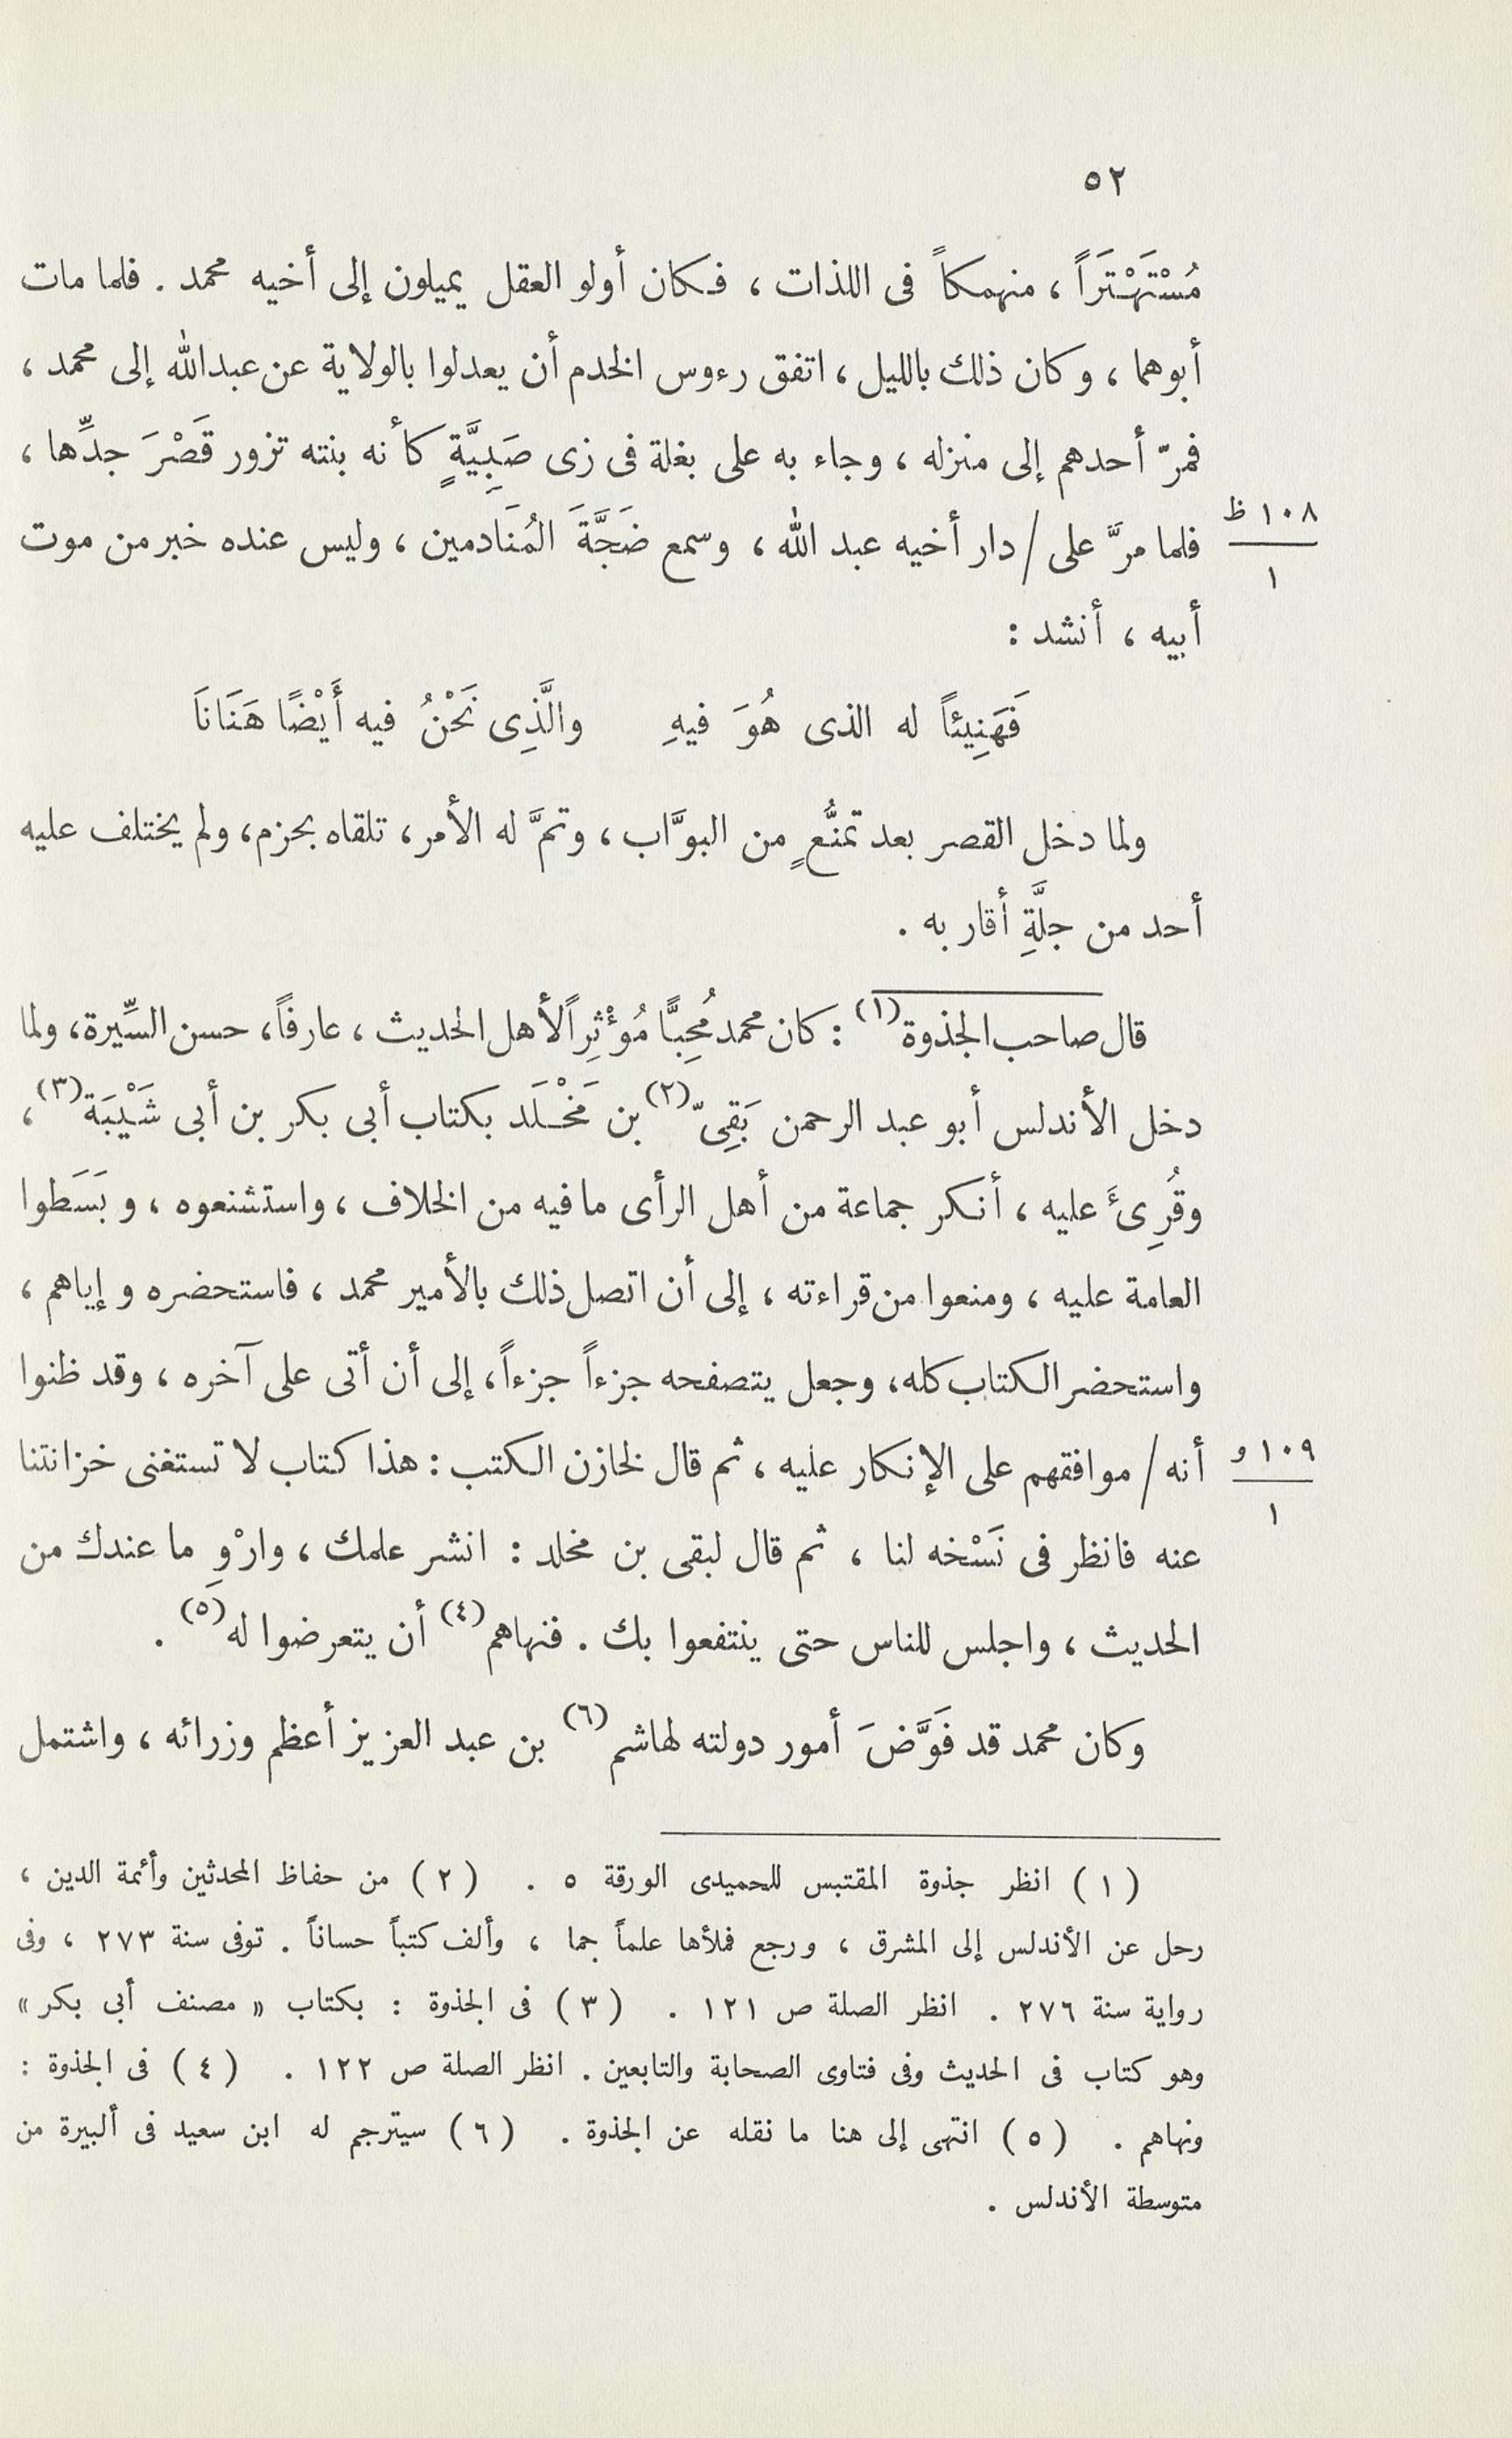 ٥٢
مُسْتَهْتَرَاً ، منهمكاً فى اللذات ، فكان أولو العقل يميلون إلى أخيه محمد . فلما مات
أبوهما ، وكان ذلك بالليل ، اتفق رءوس الخدم أن يعدلوا بالولاية عن عبدالله إلى محمد ،
فمرّ أحدهم إلى منزله ، وجاء به على بغلة فى زى صَبِيَّةٍ كأنه بنته تزور قَصْرَ جدِّها ،
١٠٨ ظ
فلما مرَّ على / دار أخيه عبد الله ، وسمع ضَجَّةَ المُنَادمين ، وليس عنده خبر من موت
١
أبيه ، أنشد :
فَهَنِيئاً له الذى هُوَ فيهِ والَّذِى نَحْنُ فيه أَيْضًا هَنَانَا
ولما دخل القصر بعد تمنُّعٍ من البوَّاب ، وتمَّ له الأمر ، تلقاه بحزم ، ولم يختلف عليه
أحد من جلَّةِ أقاربه .
قال صاحب الجذوة(١) : كان محمد مُحِبًّا مُؤْثِراً لأهل الحديث ، عارفاً ، حسن السِّيرة ، ولما
دخل الأندلس أبو عبد الرحمن بَقِىّ(٢) بن مَخْلَد بكتاب أبى بكر بن أبى شَيْبَة(٣) ،
وقُرِئَ عليه ، أنكر جماعة من أهل الرأى ما فيه من الخلاف ، واستشنعوه ، وبَسَطوا
العامة عليه ، ومنعوا من قراءته ، إلى أن اتصل ذلك بالأمير محمد ، فاستحضره وإياهم ،
واستحضر الكتاب كله ، وجعل يتصفحه جزءاً جزءاً ، إلى أن أتى على آخره ، وقد ظنوا
١٠٩ و
أنه / موافقهم على الإنكار عليه ، ثم قال لخازن الكتب : هذا كتاب لا تستغنى خزانتنا
١
عنه فانظر فى نَسْخه لنا ، ثم قال لبقى بن مخلد : انشر علمك ، وارْوِ ما عندك من
الحديث ، واجلس للناس حتى ينتفعوا بك . فنهاهم(٤) أن يتعرضوا له(٥) .
وكان محمد قد فَوَّضَ أمور دولته لهاشم(٦) بن عبد العزيز أعظم وزرائه ، واشتمل
(١) انظر جذوة المقتبس للحميدى الورقة ٥ . (٢) من حفاظ المحدثين وأئمة الدين ،
رحل عن الأندلس إلى المشرق ، ورجع فملأها علماً جما ، وألف كتباً حساناً . توفى سنة ٢٧٣ ، وفى
رواية سنة ٢٧٦ . انظر الصلة ص ١٢١ . (٣) فى الجذوة : بكتاب « مصنف أبى بكر »
وهو كتاب فى الحديث وفى فتاوى الصحابة والتابعين . انظر الصلة ص ١٢٢ . (٤) فى الجذوة :
ونهاهم . (٥) انتهى إلى هنا ما نقله عن الجذوة . (٦) سيترجم له ابن سعيد فى ألبيرة من
متوسطة الأندلس .